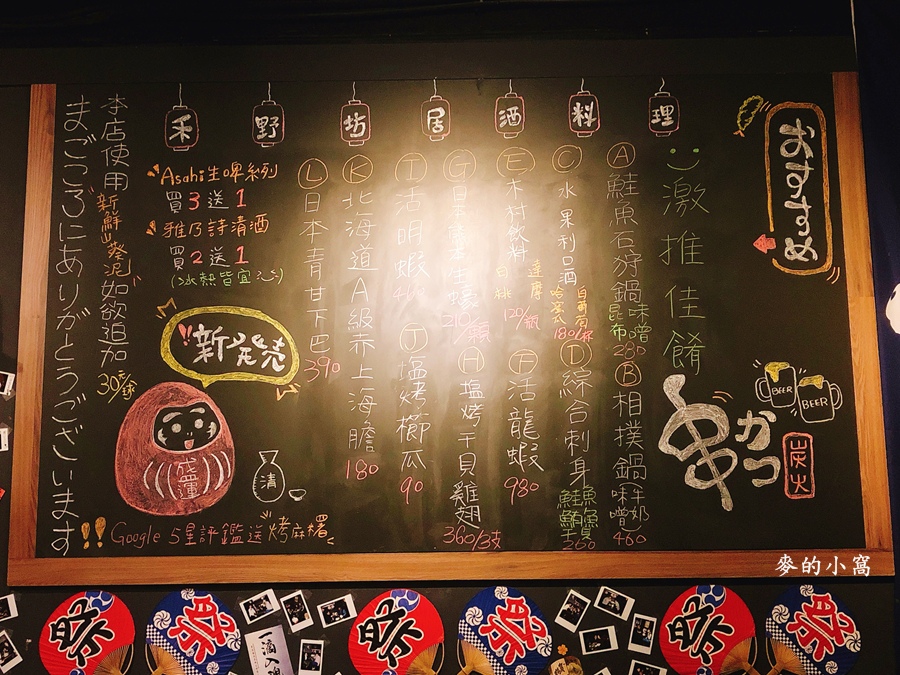 おすすめ
禾野坊居酒料理
激推佳餚
Ⓐ鮭魚石狩鍋 味噌 昆布 280
Ⓑ相撲鍋 牛奶 味噌 460
Ⓒ水果利口酒 白葡萄 哈蜜瓜 180/杯
Ⓓ綜合刺身 鮭魚 鮪魚 260
Ⓔ木村飲料 達摩 120/瓶
Ⓕ活龍蝦 980
Ⓖ日本 生蠔 210/顆
Ⓗ塩烤干貝雞翅 360/3支
Ⓘ活明蝦
Ⓙ塩烤櫛瓜 90
Ⓚ北海道A級赤上海膽 180
Ⓛ日本青甘下巴 390
串かつ
炭火
BEER
BEER
Asahi生啤系列
買3送1
雅乃詩清酒
買2送1
(冰熱皆宜)
新発売
盛運
清
Google 5星評鑑送烤麻糬
本店使用新鮮山葵泥如欲追加
30元/球
まごころにありがとうございます!!
祭
祭
祭
祭
祭
祭
麥的小窩